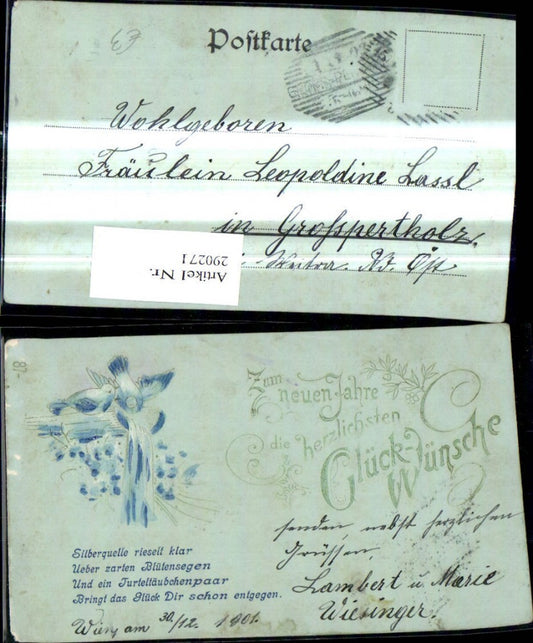 63
Postkarte
Wohlgeboren
Fräulein Leopoldine Lassl
in Grosspertholz
Weitra. N. Öst
Artikel Nr.
290271
Zum
neuen Jahre
die herzlichsten
Glück-
Wünsche
Silberquelle rieselt klar
Ueber zarten Blütensegen
Und ein Turteltäubchenpaar
Bringt das Glück Dir schon entgegen.
senden, nebst herzlichen
Grüssen,
Lambert u Marie
Wiesinger
Wien, am 30/12. 1901.